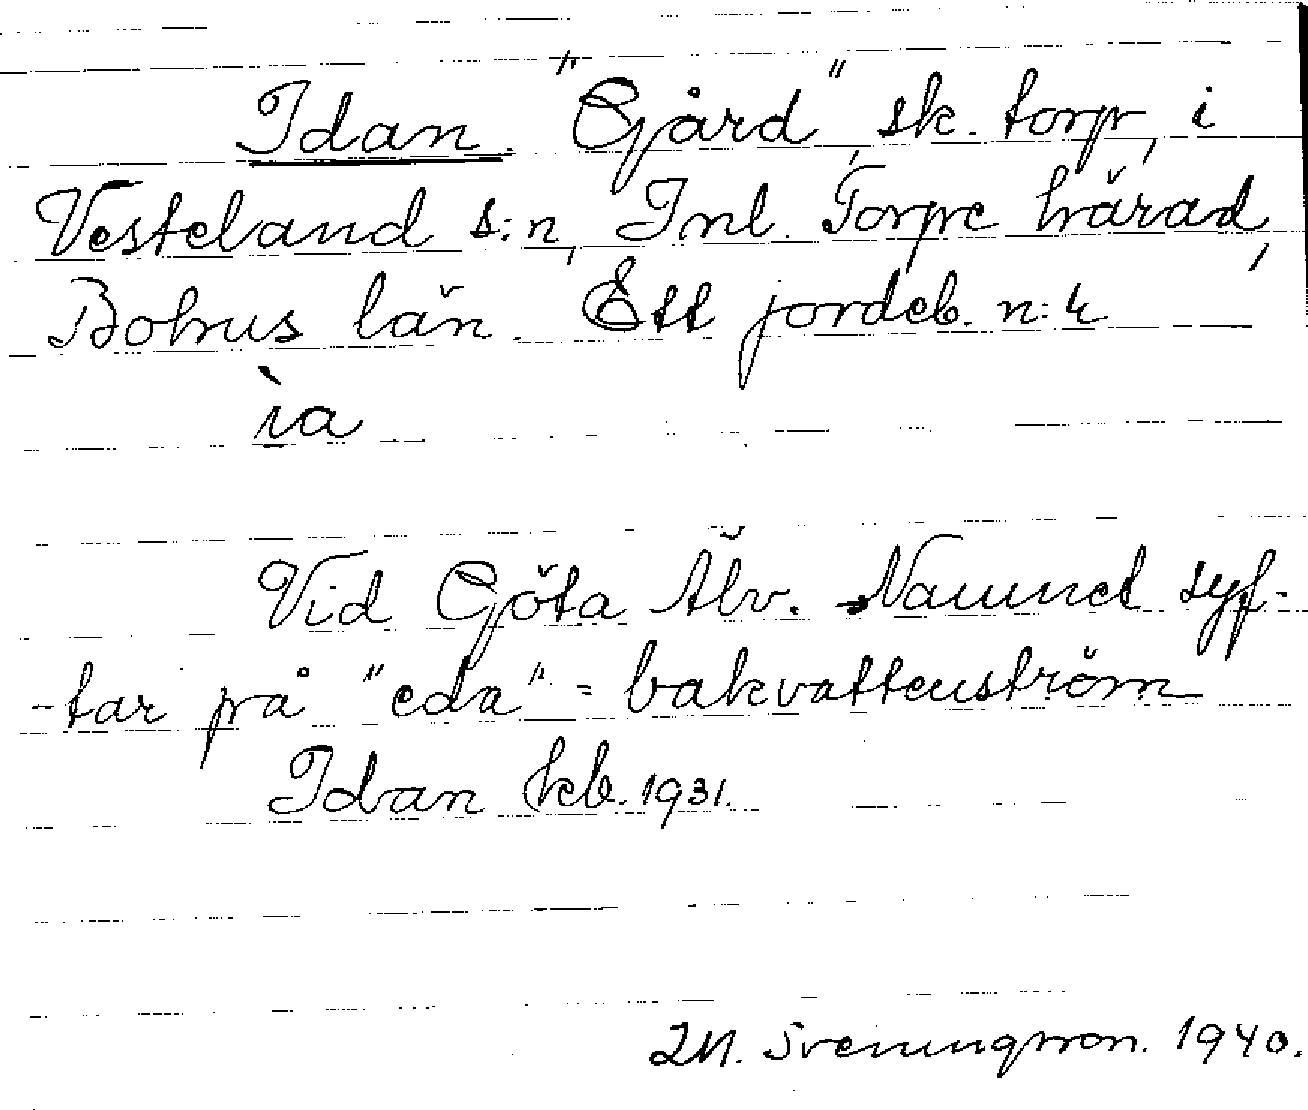 Idan. "Gård", sk. torp, i
Vesteland s:n, Inl. Torpe härad,
Bohus län. Ett jordeb. n:r
ìa
Vid Göta Älv. Namnet syf-
-tar på "eda" = bakvattenström
Idan kb. 1931.
M. Sveningsson. 1940.